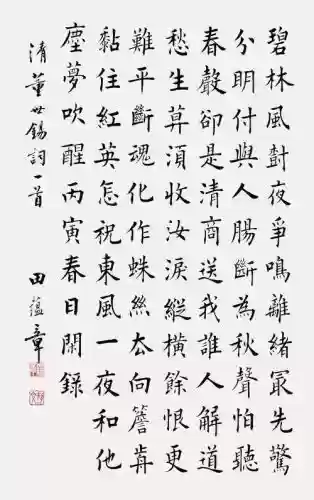 碧林風對夜爭鳴離緒冣先驚
分明付與人腸斷為秋聲怕聽
春聲卻是清商送我誰人解道
愁生筭須收汝淚縱橫餘恨更
難平斷魂化作蛛絲去向簷歬
黏住紅英怎祝東風一夜和他
塵夢吹醒丙寅春日閑錄
清董世錫詞一首
田蘊章